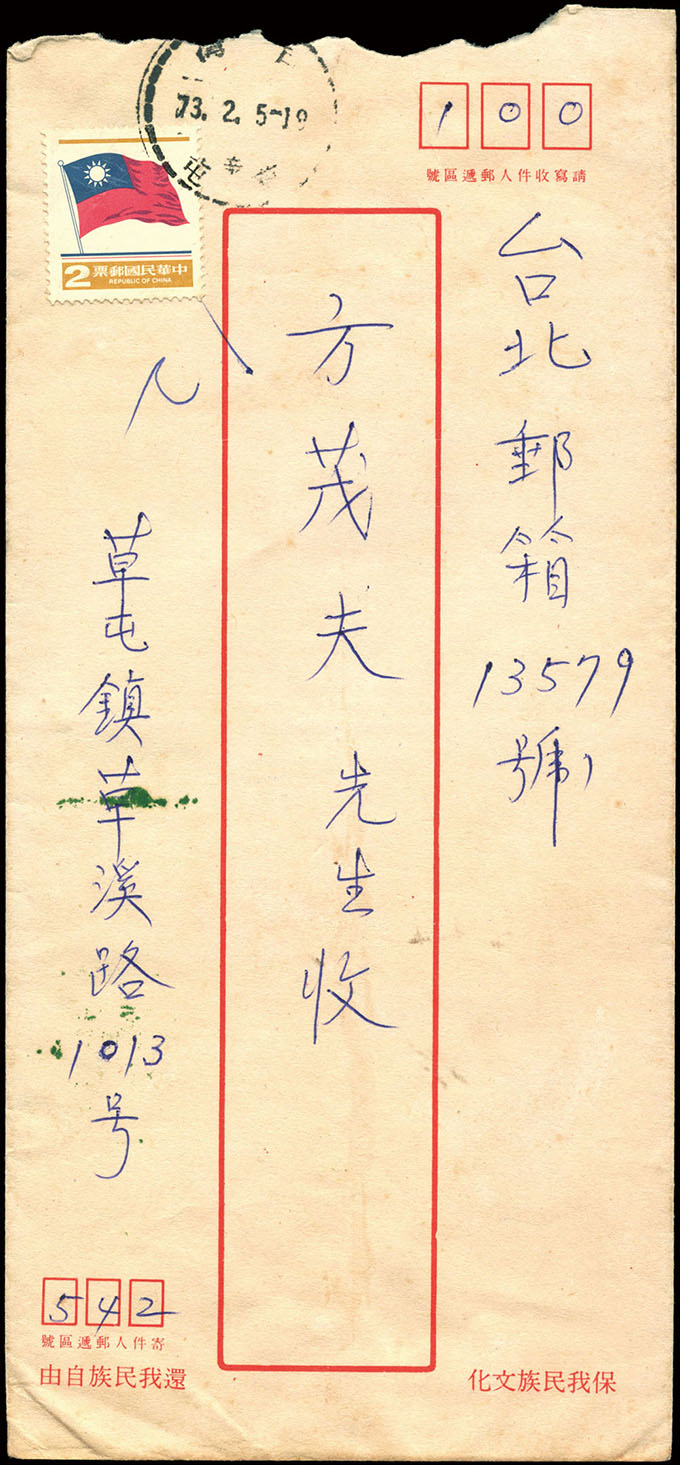 73. 2. 5-19
中華民國郵票
2
REPUBLIC OF CHINA
100
請寫收件人郵遞區號
台北郵箱13579號
方茂夫先生收
草屯鎮草溪路1013号
542
寄件人郵遞區號
還我民族自由
保我民族文化